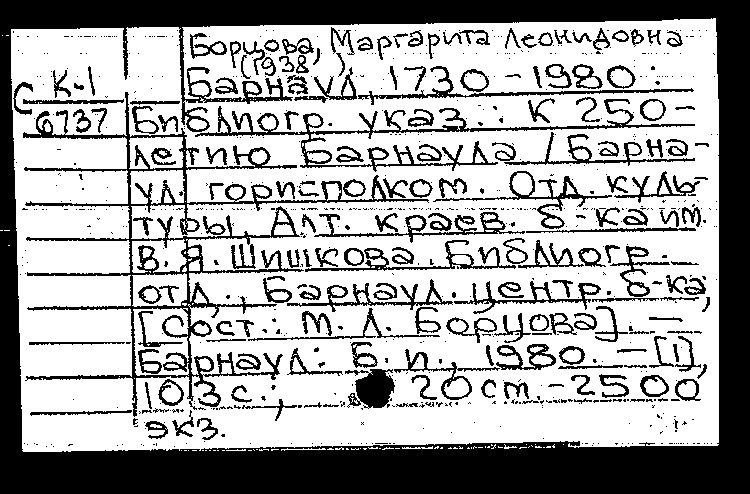 Борцова, Маргарита Леонидовна
(1938 )
К-1
Барнаул, 1730-1980:
С 6737
Библиогр. указ.: К 250-
летию Барнаула / Барна-
ул. горисполком. Отд. куль-
туры, Алт. краев. б-ка им.
В. Я. Шишкова. Библиогр.
отд., Барнаул. центр. б-ка;
[Сост.: М. Л. Борцова]. —
Барнаул: Б. и., 1980. — [1],
103 с.; 20 см. - 2500
экз.